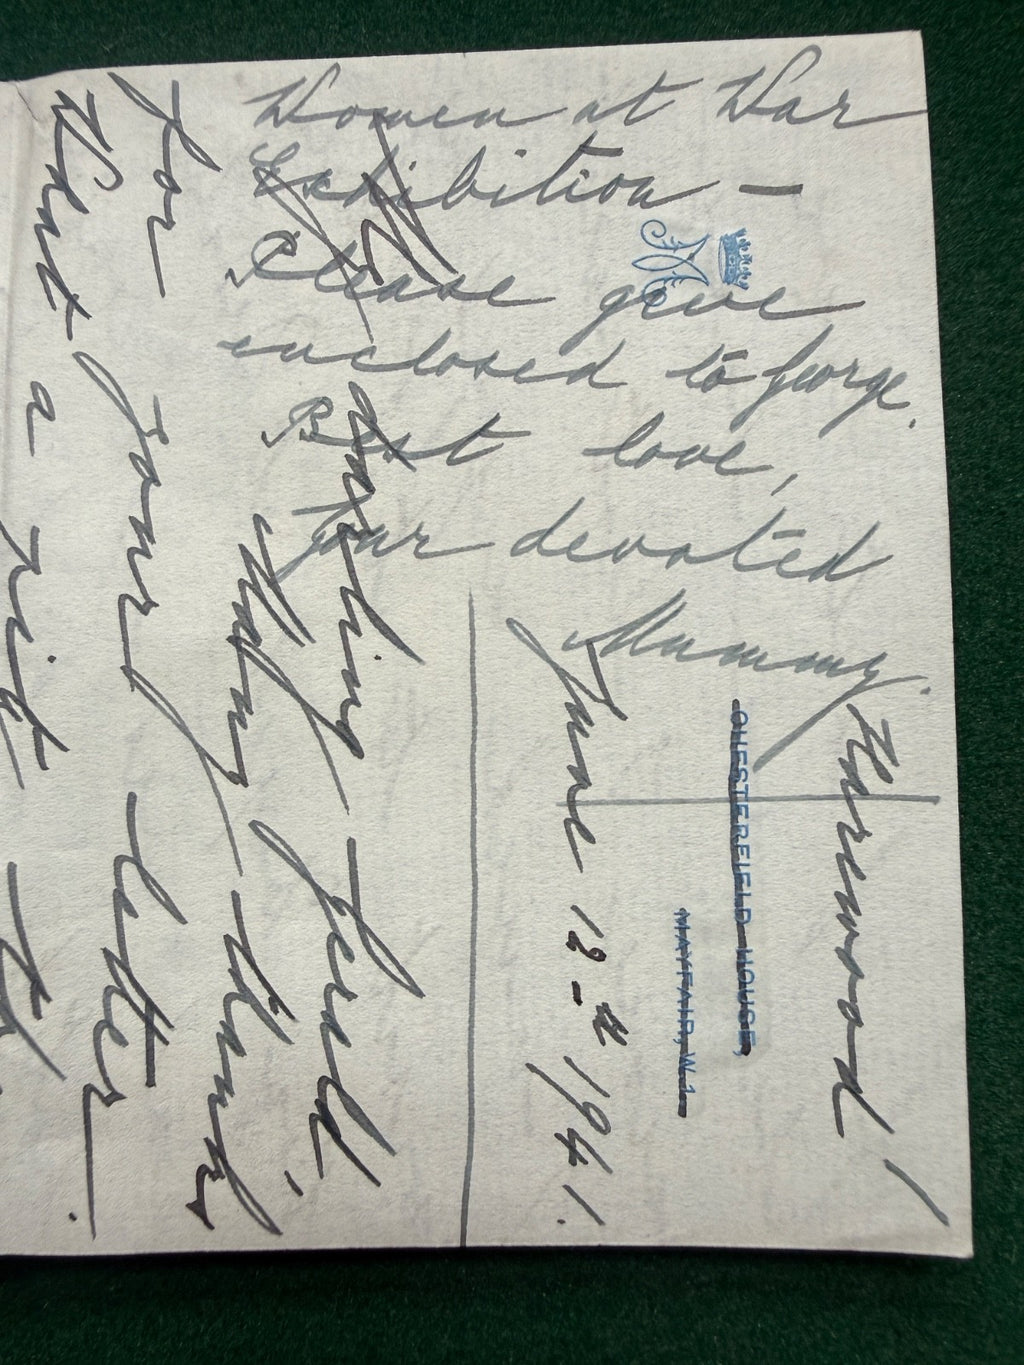 Harewood
CHESTERFIELD HOUSE,
MAYFAIR, W.1.
June 12th 1941.
My
darling Gerald,
Many thanks
for your letter.
What a
Women at War
Exhibition —
Please give
enclosed to George.
Best love,
Your devoted
Mummy.